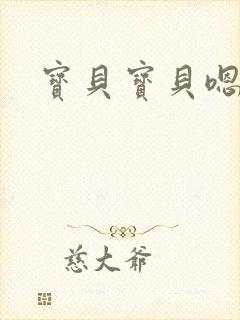 寶貝寶貝嗯
慈大爺